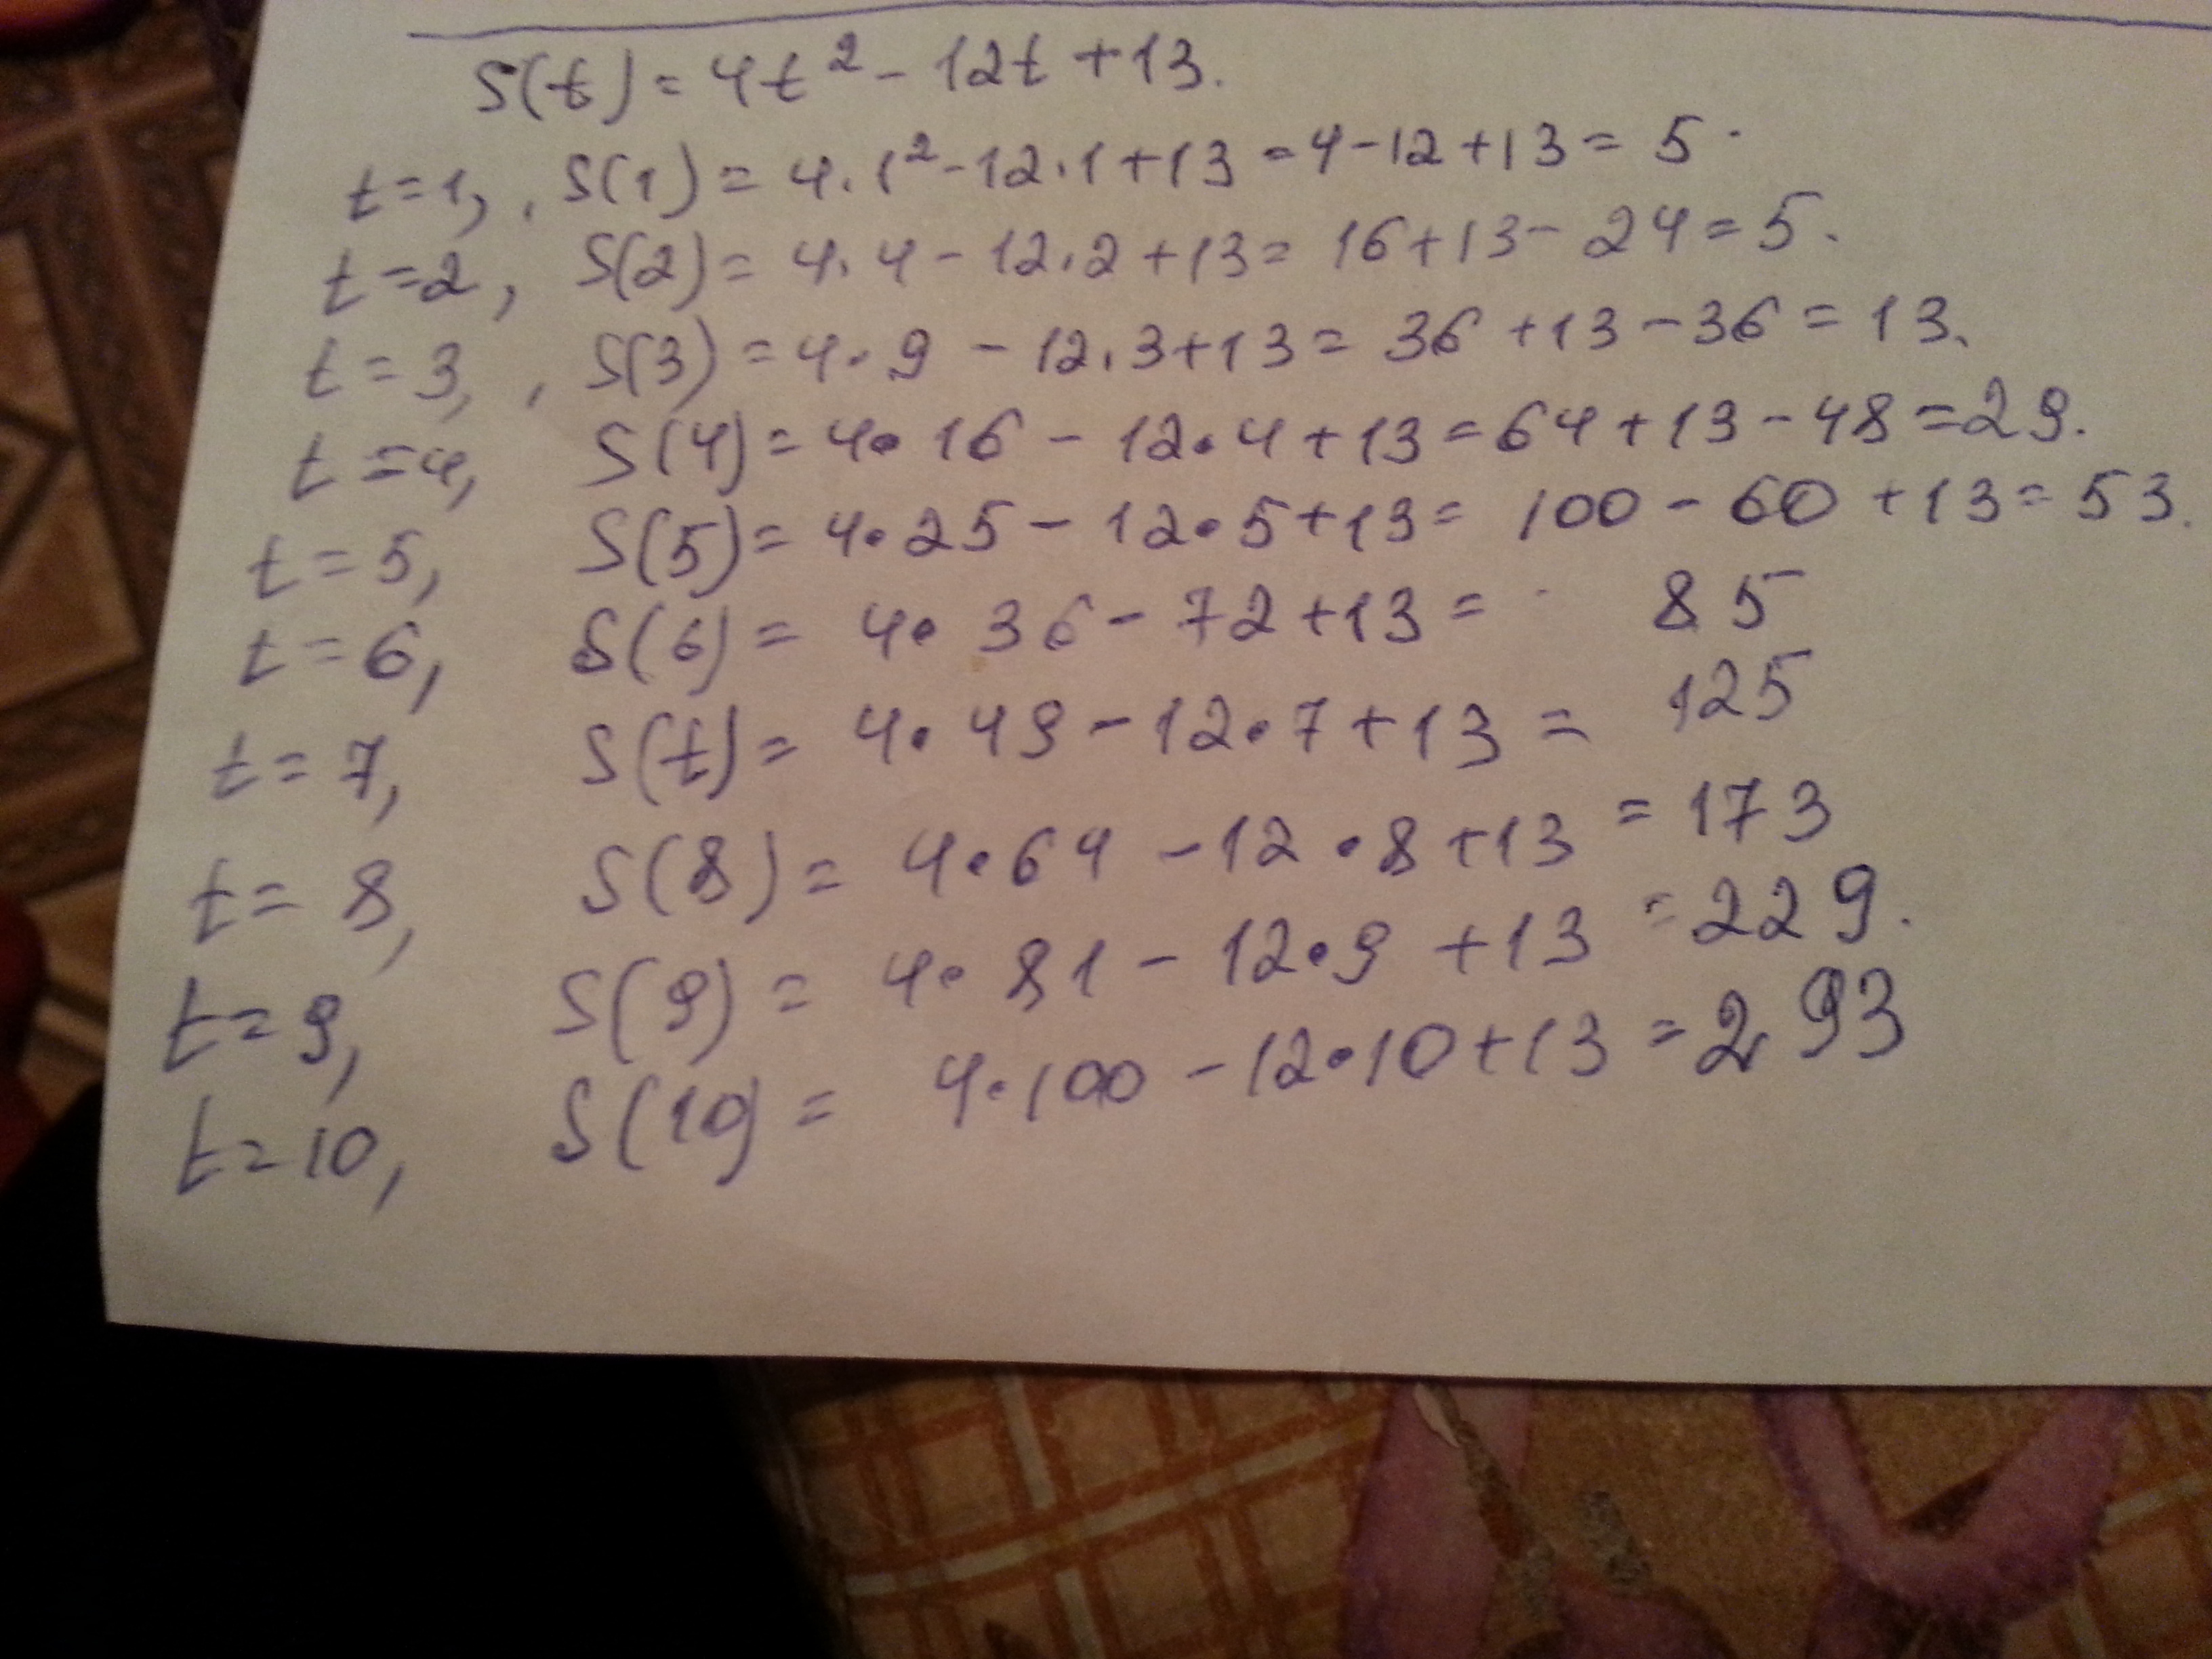 S(t) = 4t² - 12t + 13.
t=1, , S(1) = 4·1² - 12·1 + 13 = 4 - 12 + 13 = 5.
t=2, S(2) = 4·4 - 12·2 + 13 = 16 + 13 - 24 = 5.
t=3, , S(3) = 4·9 - 12·3 + 13 = 36 + 13 - 36 = 13.
t=4, S(4) = 4·16 - 12·4 + 13 = 64 + 13 - 48 = 29.
t=5, S(5) = 4·25 - 12·5 + 13 = 100 - 60 + 13 = 53.
t=6, S(6) = 4·36 - 72 + 13 = 85
t=7, S(t) = 4·49 - 12·7 + 13 = 125
t=8, S(8) = 4·64 - 12·8 + 13 = 173
t=9, S(9) = 4·81 - 12·9 + 13 = 229.
t=10, S(10) = 4·100 - 12·10 + 13 = 293